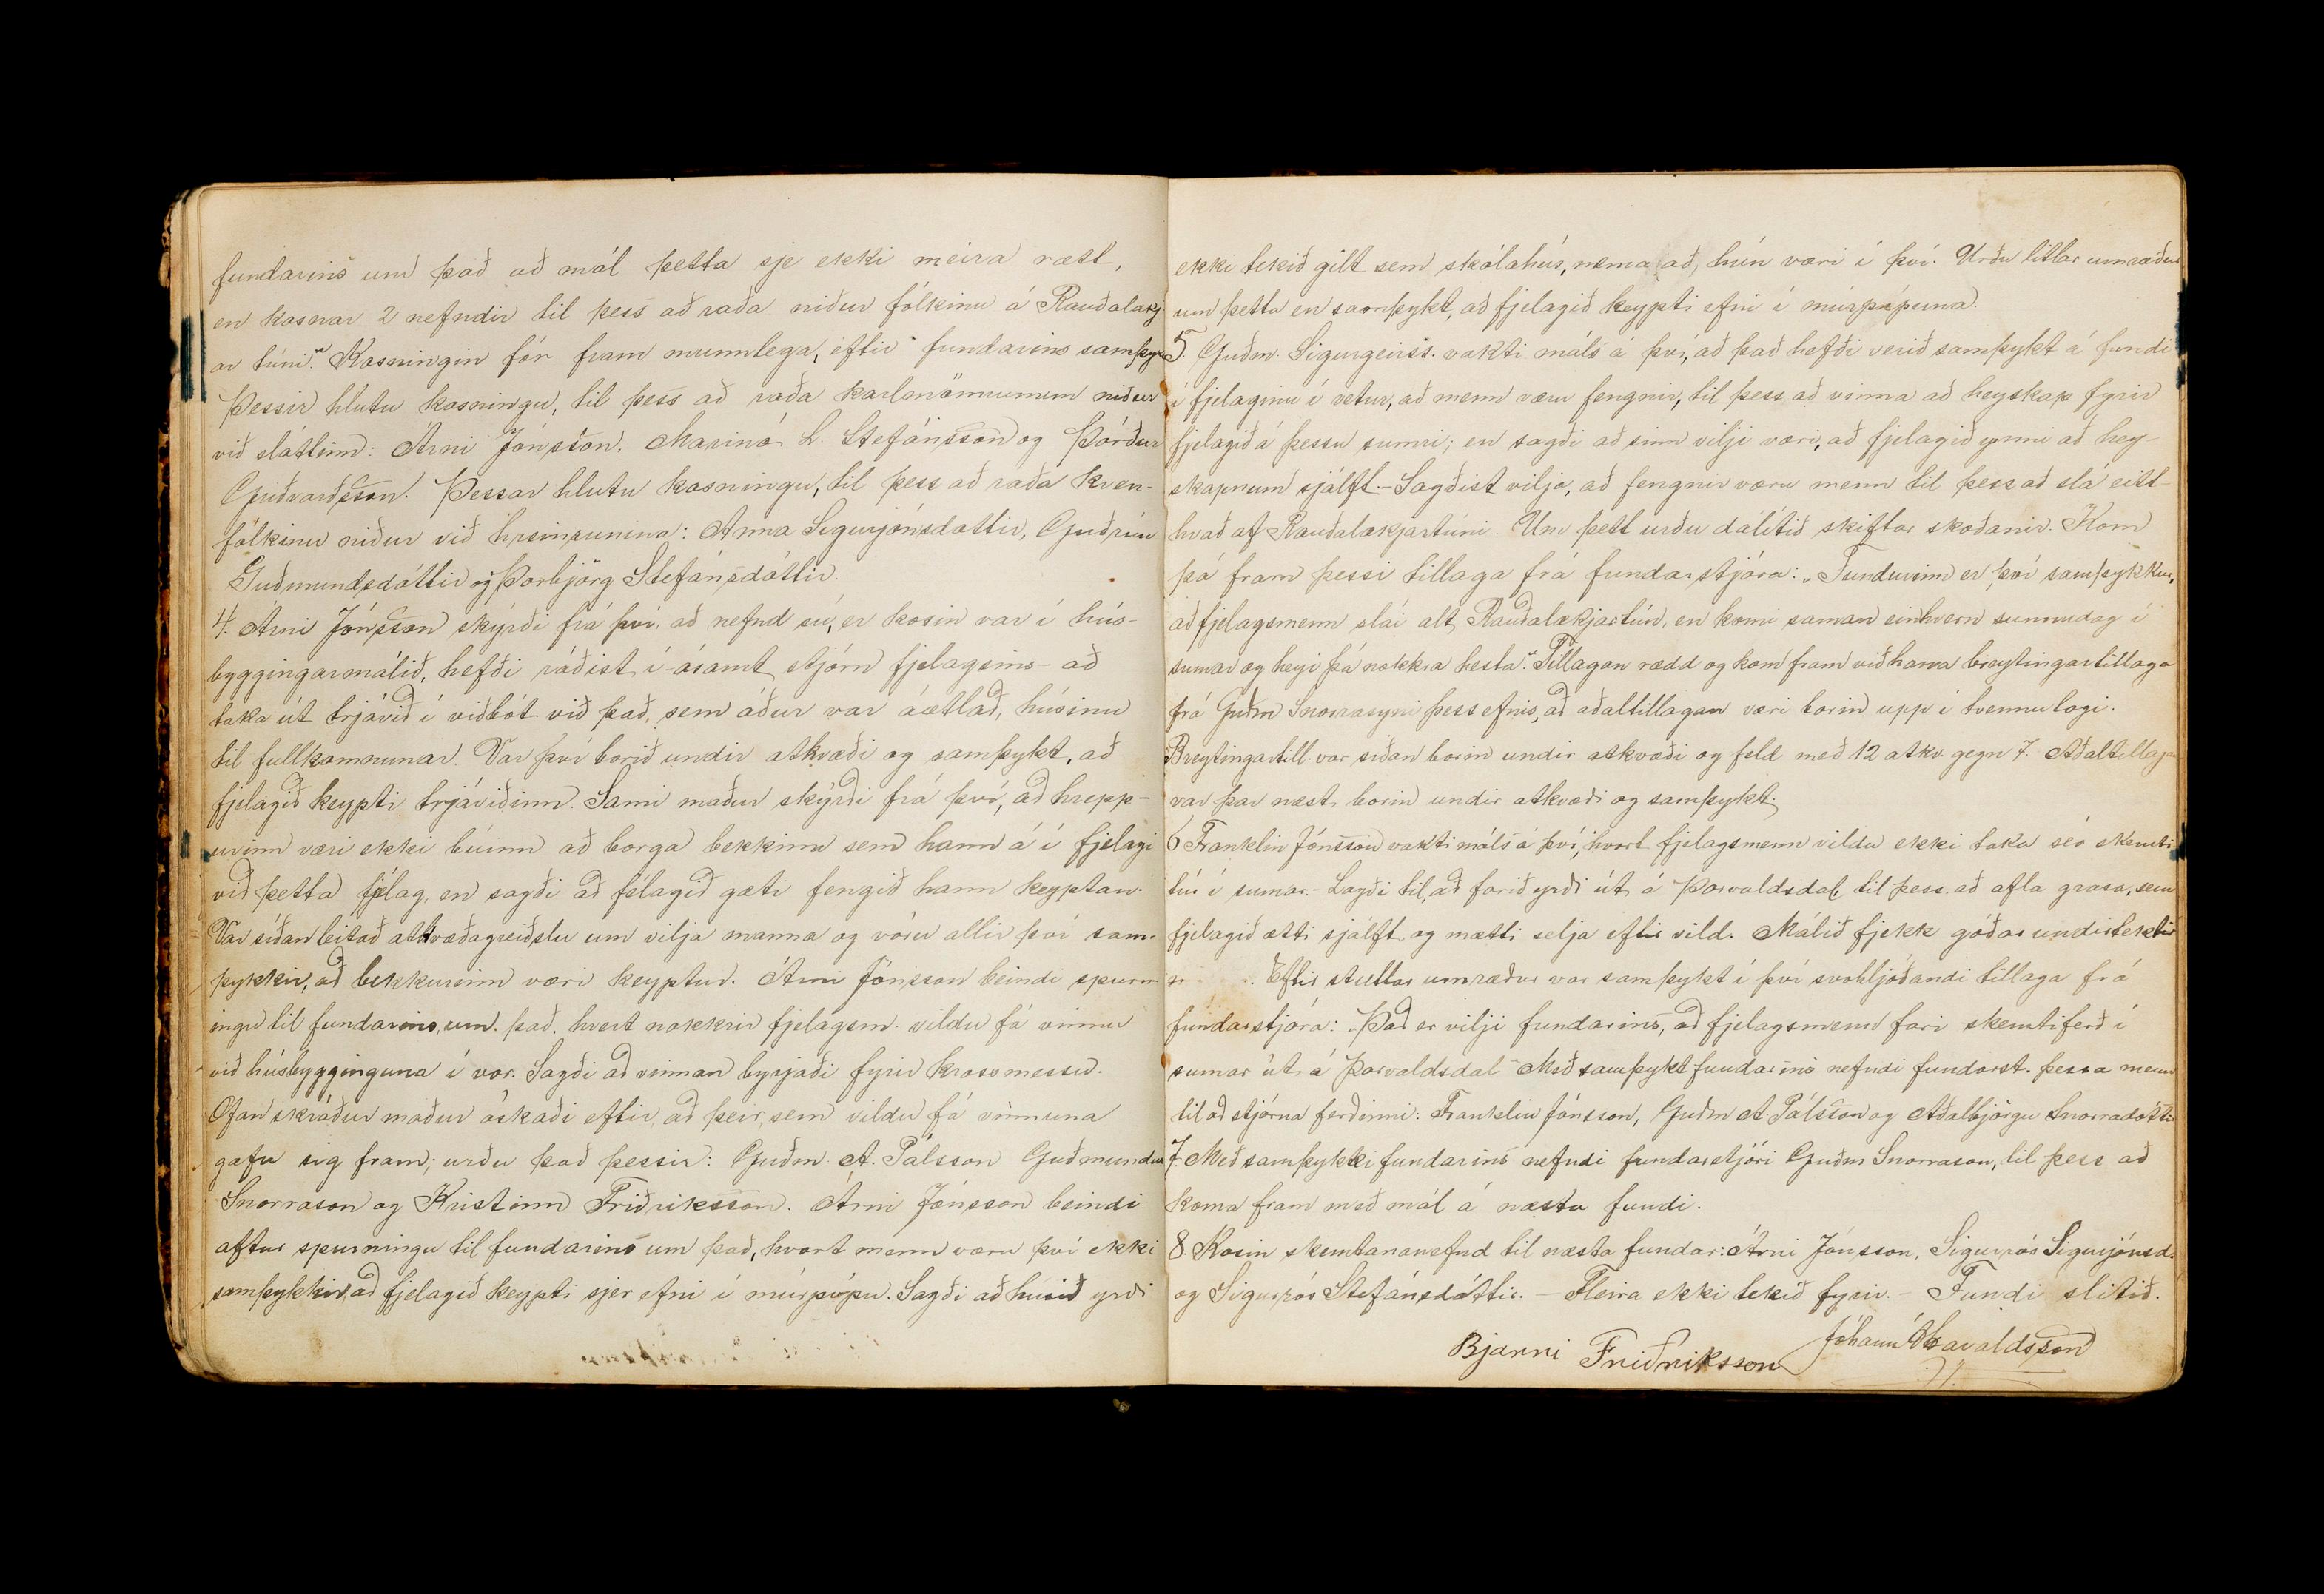 fundarins um það að mál þetta sje ekki meira rætt,
en kosnar 2 nefndir til þess að raða niður fólkinu á Rauðalækj
ar túni." Kosningin fór fram munnlega, eftir fundarins samþyk
Þessir hlutu kosningu, til þess að raða karlmönnunum niður
við sláttinn: Árni Jónsson. Marinó L. Stefánsson og Þórður
Guðvarðsson. Þessar hlutu kosningu, til þess að raða kven-
fólkinu niður við hreinsunina: Anna Sigurjónsdóttir, Guðrún
Guðmundsdóttir og Þorbjörg Stefánsdóttir.
4. Árni Jónsson skýrði frá því, að nefnd sú, er kosin var í hús-
byggingarmálið, hefði ráðist í - ásamt stjórn fjelagsins - að
taka út trjávið í viðbót við það, sem áður var áætlað, húsinu
til fullkomnunar. Var því borið undir atkvæði og samþykt, að
fjelagið keypti trjáviðinn. Sami maður skýrði frá því, að hrepp-
urinn væri ekki búinn að borga bekkinn sem hann á í fjelagi
við þetta fjelag, en sagði að félagið gæti fengið hann keyptan.
Var síðan leitað atkvæðagreiðslu um vilja manna og vóru allir því sam-
þykkir, að bekkurinn væri keyptur. Árni Jónsson beindi spurn-
ingu til fundarins, um það, hvert nokkrir fjelagsm. vildu fá vinnu
við húsbygginguna í vor. Sagði að vinnan byrjaði fyrir krossmessu.
Ofan skráður maður óskaði eftir, að þeir, sem vildu fá vinnuna
gæfu sig fram; urðu það þessir: Guðm. A. Pálsson Guðmundur
Snorrason og Kristinn Friðriksson. Árni Jónsson beindi
aftur spurningu til fundarins um það, hvort menn væru því ekki
samþykkir, að fjelagið keypti sjer efni í múrpípu. Sagði að húsið yrði
ekki tekið gilt sem skólahús, nema að, hún væri í því. Urðu litlar umræður
um þetta en samþykt, að fjelagið keypti efni í múrpípuna.
5. Guðm. Sigurgeirss. vakti máls á því, að það hefði verið samþykt á fundi
í fjelaginu í vetur, að menn væru fengnir, til þess að vinna að heyskap fyrir
fjelagið á þessu sumri; en sagði að sinn vilji væri, að fjelagið ynni að hey-
skapnum sjálft. - Sagðist vilja, að fengnir væru menn til þess að slá eitt-
hvað af Rauðalækjartúni. Um þett urðu dálítið skiftar skoðanir. Kom
þá fram þessi tillaga frá fundarstjóra: „Fundurinn er því samþykkur,
að fjelagsmenn slái alt Rauðalækjartún, en komi saman einhvern sunnudag í
sumar og heyi þá nokkra hesta". Tillagan rædd og kom fram við hana breytingartillaga
frá Guðm Snorrasyni þess efnis, að aðaltillagan væri borin upp í tvennu lagi.
Breytingartill. var síðan borin undir atkvæði og feld með 12 atkv. gegn 7. Aðaltillagan
var þar næst borin undir atkvæði og samþykt.
6 Franklín Jónsson vakti máls á því, hvort fjelagsmenn vildu ekki taka sér skemti
túr í sumar. - Lagði til, að farið yrði út á Þorvaldsdal til þess að afla grasa, sem
fjelagið ætti sjálft og mætti selja eftir vild. Málið fjekk góðar undirtektir
Eftir stuttar umræður var samþykt í því svohljóðandi tillaga frá
fundarstjóra: „Það er vilji fundarins, að fjelagsmenn fari skemtiferð í
sumar út á Þorvaldsdal" Með samþykt fundarins nefndi fundarst. þessa menn
til að stjórna ferðinni: Franklín Jónsson, Guðm A. Pálsson og Aðalbjörgu Snorradóttir
7. Með samþykki fundarins nefndi fundarstjóri Guðm Snorrason, til þess að
koma fram með mál á næsta fundi.
8. Kosin skemtananefnd til næsta fundar: Árni Jónsson, Sigurrós Sigurjónsd.
og Sigurrós Stefánsdóttir. - Fleira ekki tekið fyrir. - Fundi slitið.
Bjarni Friðriksson Jóhann Ó. Haraldsson